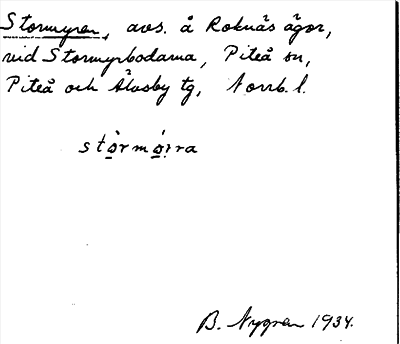 Stormyren, avs. å Roknäs ägor,
vid Stormyrbodarna, Piteå sn,
Piteå och Älvsby tg, Norrb. l.
stòrmó̱rra
B. Nygren 1934.